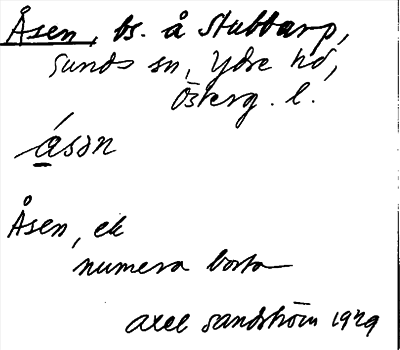 Åsen, bs. å Stubbarp,
Sunds sn, Ydre hd,
Österg. l.
åsən
Åsen, ek
numera borta
Axel Sandström 1929